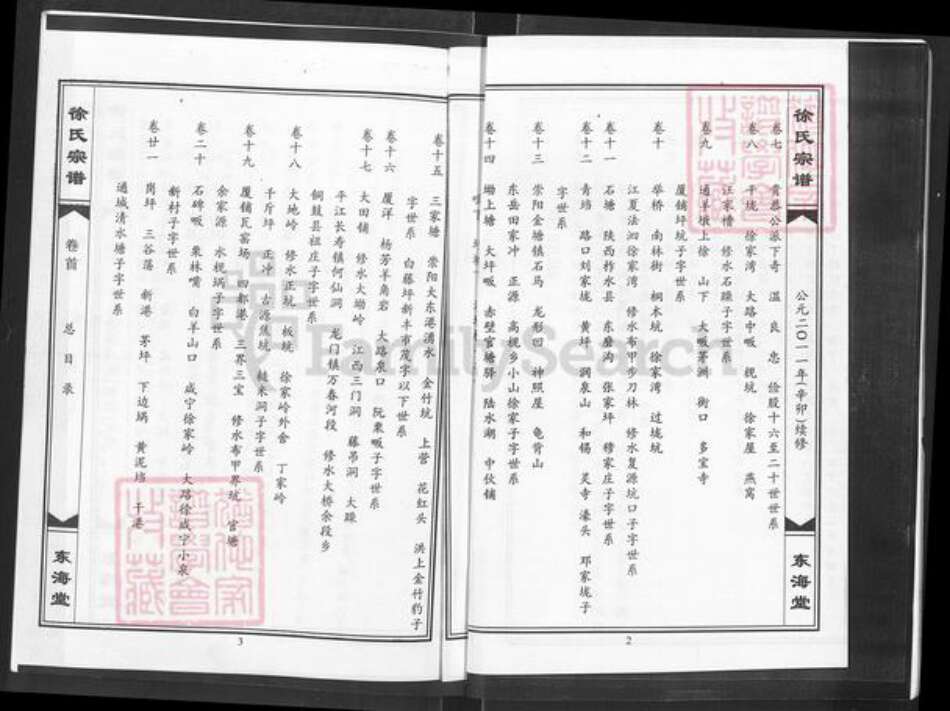 徐氏宗谱
公元二〇一一年(辛卯)续修
东海堂
卷七 青恭公派下奇 温 良 忠 俭股十六至二十世世系
卷八 平垅 徐家湾 大路中畈 枧坑 徐家屋 燕窝
汪家槽 修水石躁子字世系
卷九 通羊墩上徐 山下 大畈茅洲 衙口 多宝寺
厦铺坪坑子字世系
卷十 举桥 南林街 桐木坑 徐家湾 过垅坑
江夏法泗徐家湾 修水布甲步刀林 修水复源坑口子字世系
卷十一 石塘 陕西柞水县 东磨沟 张家坪 穆家庄子字世系
卷十二 青珰 路口刘家垅 黄坪 洞泉山 和锡 灵寺 濠头 邓家垅子
字世系
卷十三 崇阳金塘镇石马 龙形回 神照屋 龟背山
东岳田家冲 正源 高枧乡小山徐家子字世系
卷十四 坳上塘 大坪畈 赤壁官塘驿 陆水湖 中伙铺
2
卷十五 三家塘 崇阳大东港湧水 金竹坑 上营 花红头 洪上金竹豹子
字世系 白藤坪新丰市茂字以下世系
卷十六 厦洋 杨芳羊角岩 大路泉口 阮东畈子字世系
卷十七 大田铺 修水大坳岭 江西三门洞 藤吊洞 大躁
平江长寿镇何仙洞 龙门镇万春河段 修水大桥余段乡
铜鼓县祖庄子字世系
卷十八 大地岭 修水正坑 板坑 徐家岭外舍 丁家岭
千斤坪 正冲 古源焦坑 槌米洞子字世系
卷十九 厦铺瓦窑场 四都港 三界三宝 修水布甲界坑 官塘
余家源 水枧埚子字世系
卷二十 石碑畈 栗林嘴 白羊山口 咸宁徐家岭 大路徐咸宁小泉
新村子字世系
卷廿一 岗坪 三谷荡 新港 茅坪 下边埚 黄泥垱 干港
通城清水塘子字世系
徐氏宗谱
卷首 总目录
东海堂
3
FamilySearch